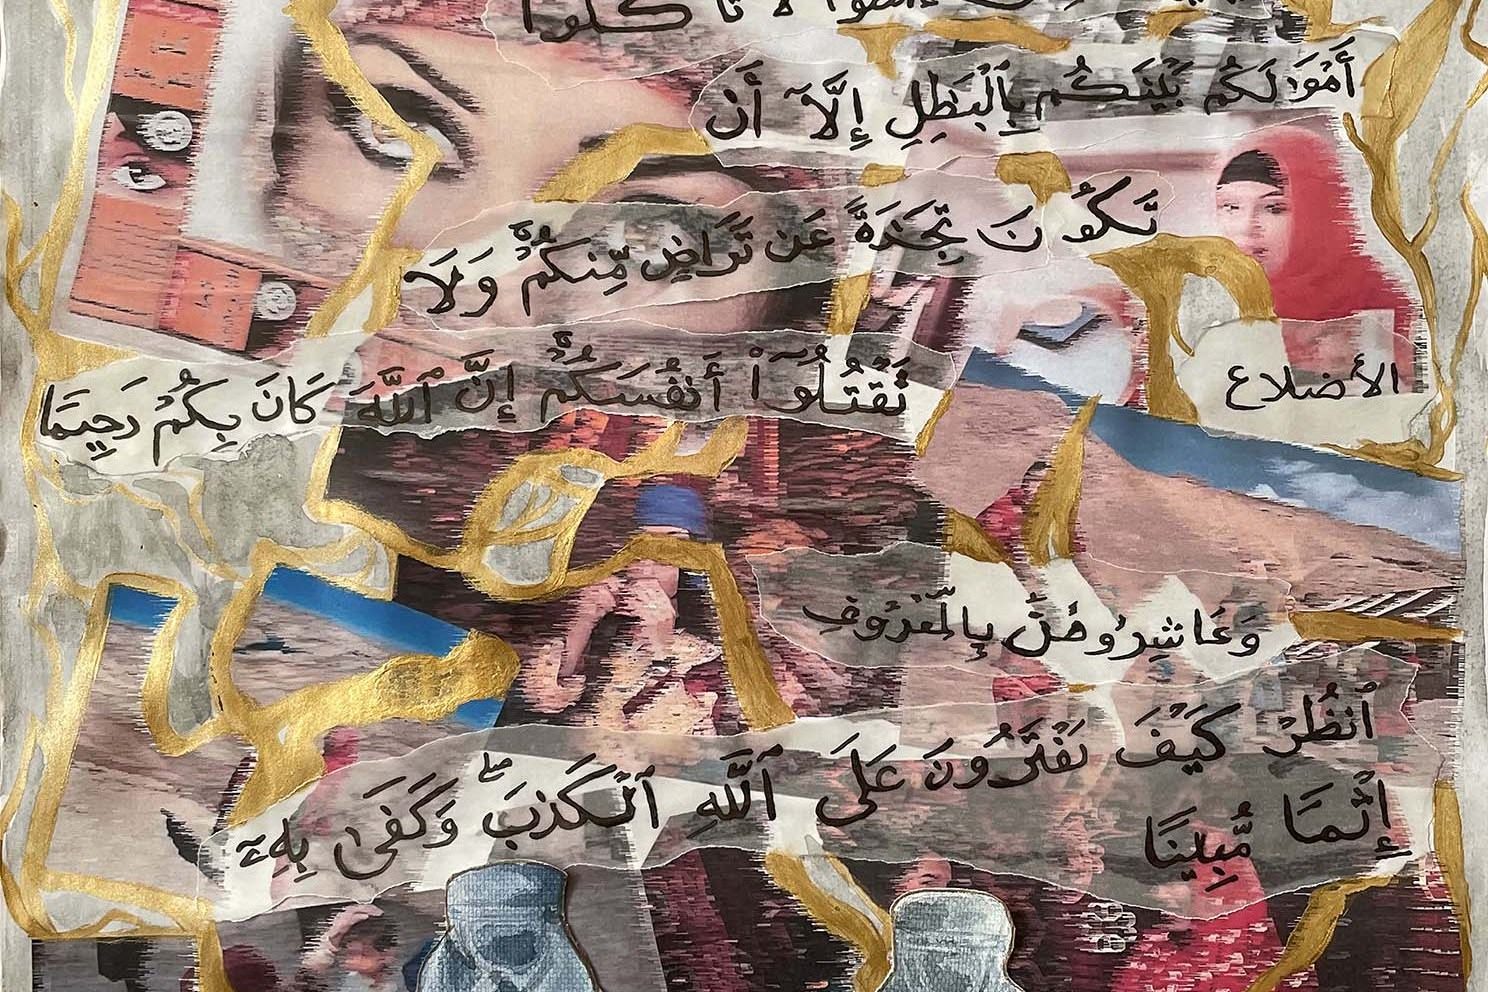 ءامنوا لا تأكلوا
أَمْوَٰلَكُم بَيْنَكُم بِٱلْبَٰطِلِ إِلَّآ أَن
تَكُونَ تِجَٰرَةً عَن تَرَاضٍ مِّنكُمْ وَلَا
تَقْتُلُوٓا۟ أَنفُسَكُمْ إِنَّ ٱللَّهَ كَانَ بِكُمْ رَحِيمًا
الأضلاع
وَعَاشِرُوهُنَّ بِالْمَعْرُوفِ
ٱنظُرْ كَيْفَ يَفْتَرُونَ عَلَى ٱللَّهِ ٱلْكَذِبَ ۖ وَكَفَىٰ بِهِۦٓ
إِثْمًا مُّبِينًا